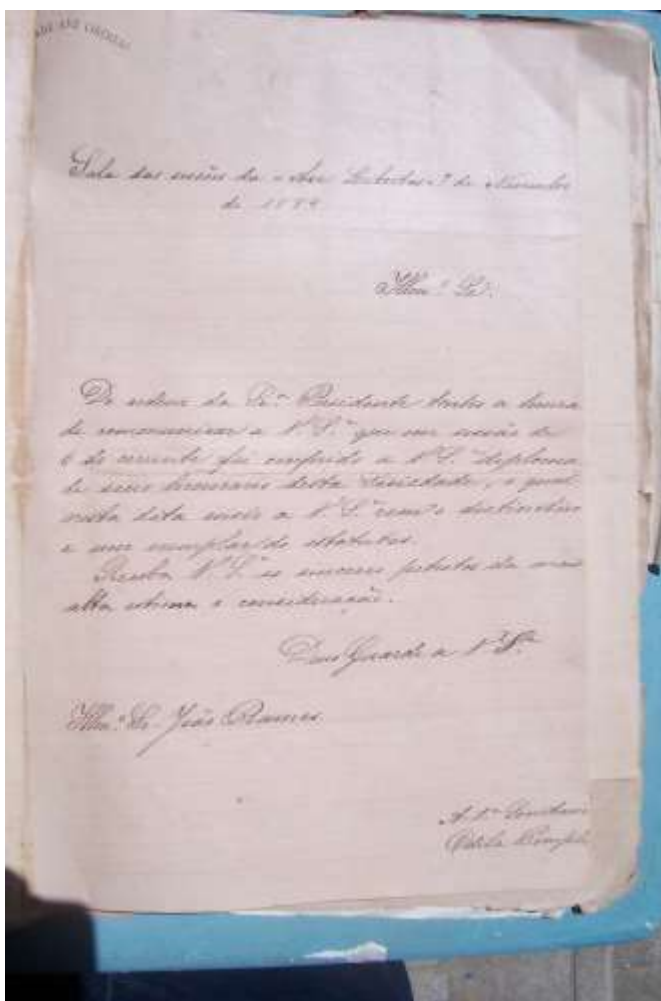 AVE LIBERTAS
Sala das sessões da "Ave Libertas" 9 de Novembro
de 1884
Illmº Sr.
De ordem da Srª Presidente tenho a honra
de communicar a V. S.ª que em sessão de
6 do corrente foi conferido a V. S.ª diploma
de socio honorario desta Sociedade, o qual
nesta data envio a V. S.ª com o distinctivo
e um exemplar de estatutos.
Receba V. S.ª os sinceros protestos da mais
alta estima e consideração.
Deus Guarde a V. S.ª
Illmº Sr. João Ramos
A 1ª
Odila Pompilio